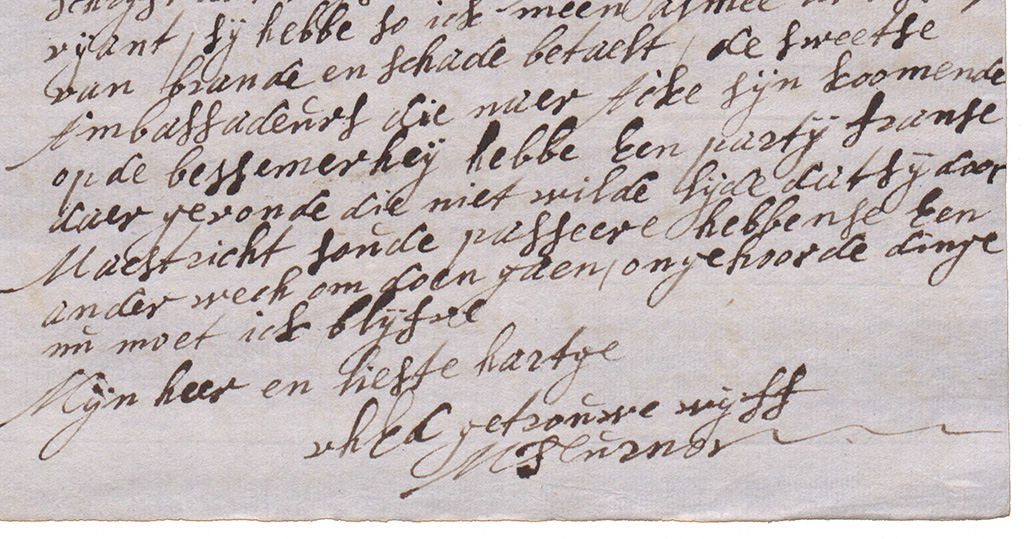 vÿant / sÿ hebbe so ick meen
van brande en schade betaelt / de sweetse
Ambassadeurs die naer Acke sijn koomende
op de bessemerheÿ hebbe Een partÿ franse
daer gevonde die niet wilde lyde dat sÿ door
Maestricht soude passeere hebbense Een
ander wech om doen gaen / ongehoorde dinge
nu moet ick blÿfve
Mÿn heer en liefste hartge
vhEd getrouwe wyff